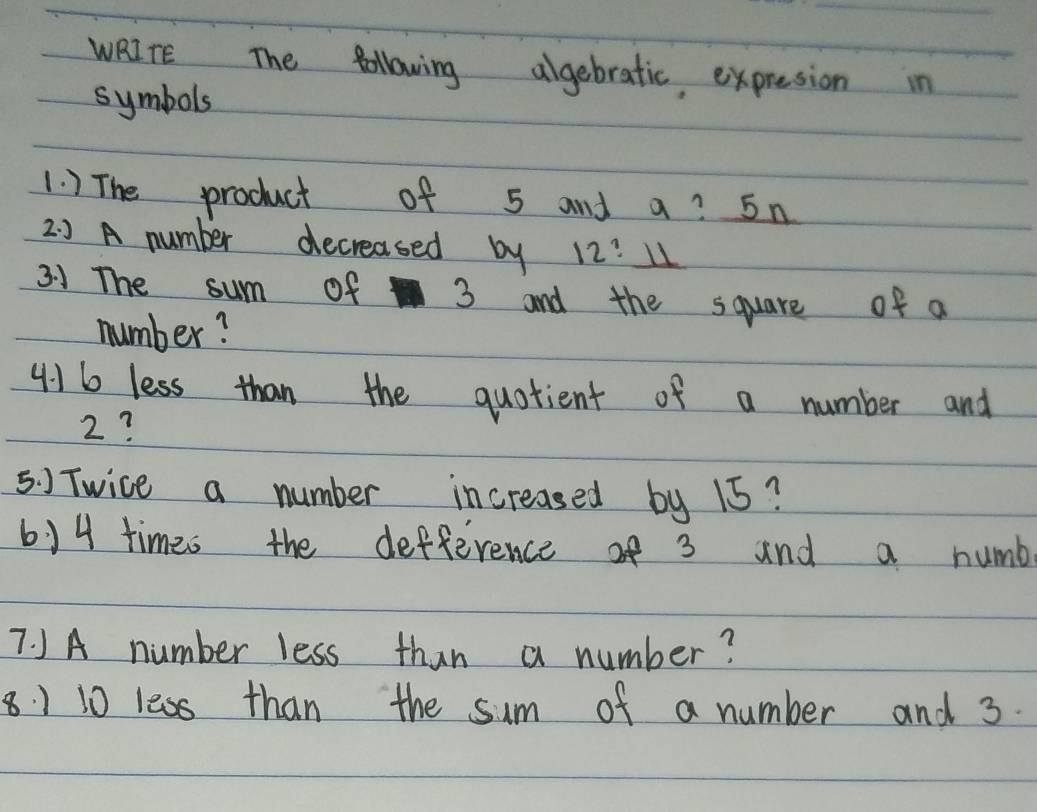 WRITE The following algebratic, expresion in
symbols
1.) The product of 5 and a? 5n
2.) A number decreased by 12? 11
3.) The sum of 3 and the square of a
number?
4.) 6 less than the quotient of a number and
2?
5.) Twice a number increased by 15?
6.) 4 times the defference of 3 and a numb
7.) A number less than a number?
8.) 10 less than the sum of a number and 3.